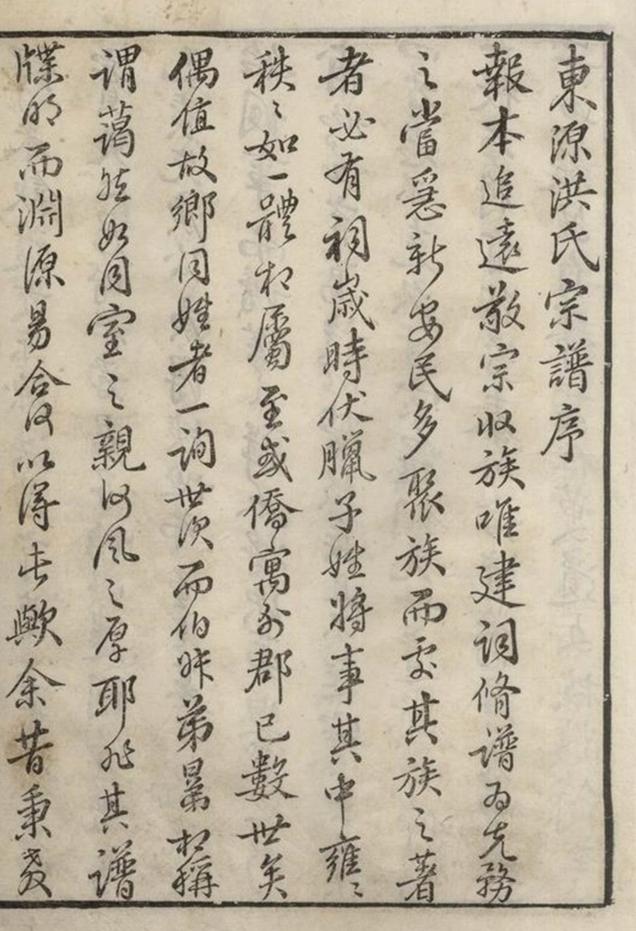 東源洪氏宗譜序
報本追遠敬宗收族唯建祠脩譜為先務
之當急新安民多聚族而處其族之著
者必有祠歲時伏臘子姓將事其中雍〻
秩〻如一體相屬至或僑寓外郡已數世矣
偶值故鄉同姓者一詢世次而伯叔弟昆相稱
謂藹然如同室之親何風之厚耶非其譜
牒明而淵源易合何以得此歟余昔秉教